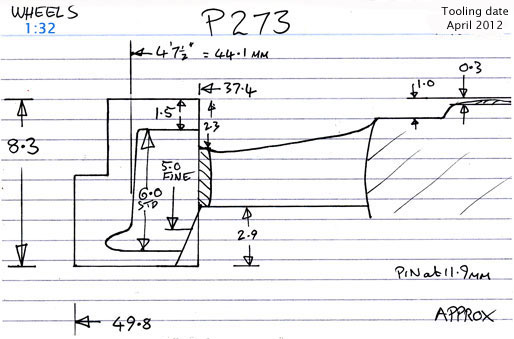 WHEELS
1:32
P273
Tooling date
April 2012
4'7½" = 44.1 MM
37.4
1.5
23
1.0
0.3
8.3
5.0
FINE
6.0
STD
2.9
PIN at 11.9MM
49.8
APPROX